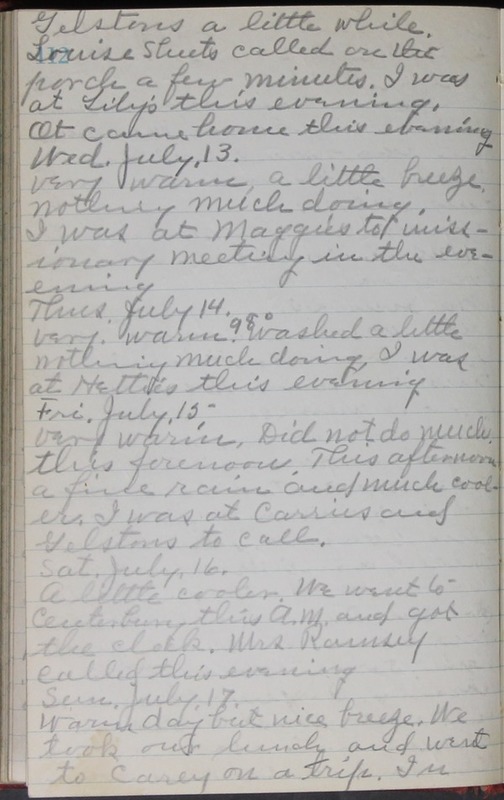 Gelstons a little while.
Louise Sheets called on the
porch a few minutes. I was
at Lily's this evening.
Ot came home this evening
Wed. July. 13.
very warm, a little breeze.
nothing much doing.
I was at Maggies to miss-
ionary meeting in the eve-
ening
Thus. July 14.
very. warm. 98° Washed a little
nothing much doing, I was
at Netties this evening
Fri. July. 15-
very warm, Did not do much
this forenoon. This afternoon
a fine rain and much cool-
er. I was at Carries and
Gelstons to call.
Sat. July. 16.
A little cooler. We went to
Centerburg this A.M. and got
the clock. Mrs Ramsey
called this evening
Sun. July. 17.
Warm day but nice breeze. We
took our lunch and went
to Carey on a trip. In